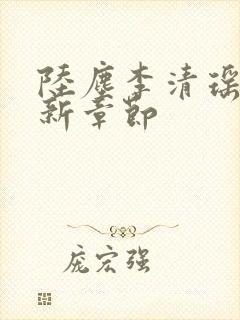 陸塵李清瑶
新章節
庞宏强